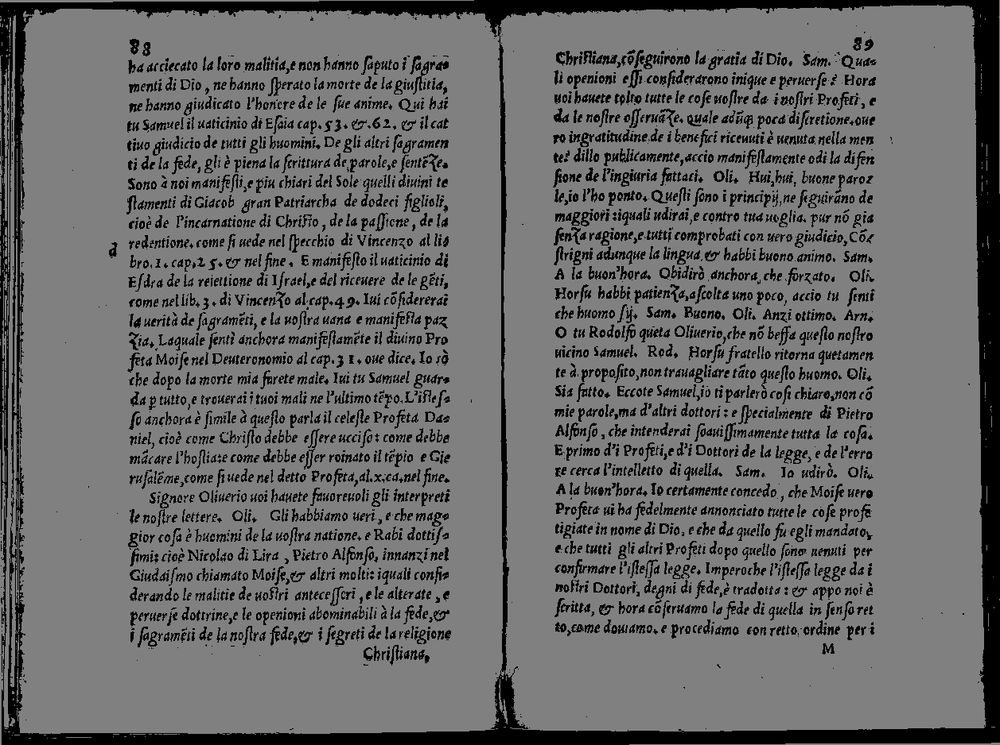 88
ha acciecato la loro malitia, e non hanno saputo i sagra-
menti di Dio, ne hanno sperato la morte de la giustitia,
ne hanno giudicato l'honore de le sue anime. Qui hai
tu Samuel il uaticinio di Esaia cap. 53. &. 62. & il cat
tiuo giudicio de tutti gli huomini. De gli altri sagramen
ti de la fede, gli è piena la scrittura de parole, e sentẽze.
Sono à noi manifesti, e piu chiari del Sole quelli diuini te
stamenti di Giacob gran Patriarcha de dodeci figlioli,
cioè de l'incarnatione di Christo, de la passione, de la
redentione. come si uede nel specchio di Vincenzo al li-
bro. 1. cap. 25. & nel fine. E manifesto il uaticinio di
Esdra de la reiettione di Israel, e del riceuere de le gẽti,
come nel lib. 3. di Vincenzo al cap. 49. Iui cõsidererai
la uerità de sagramẽti, e la uostra uana e manifesta paz
zia. Laquale sentì anchora manifestamẽte il diuino Pro
feta Moise nel Deuteronomio al cap. 31. oue dice. Io sò
che dopo la morte mia farete male. Iui tu Samuel guar-
da p tutto, e trouerai i tuoi mali ne l'ultimo tẽpo. L'istes-
so anchora è simile à questo parla il celeste Profeta Da-
niel, cioè come Christo debbe essere ucciso: come debbe
mãcare l'hostia: come debbe esser roinato il tẽpio e Gie
rusalẽme, come si uede nel detto Profeta, al. x. ca. nel fine.
Signore Oliuerio uoi hauete fauoreuoli gli interpreti
le nostre lettere. Oli. Gli habbiamo ueri, e che mag-
gior cosa è huomini de la uostra natione. e Rabi dottis-
simi: cioè Nicolao di Lira, Pietro Alfonso, innanzi nel
Giudaismo chiamato Moise, & altri molti: iquali consi-
derando le malitie de uostri antecessori, e le alterate, e
peruerse dottrine, e le openioni abominabili à la fede, &
i sagramẽti de la nostra fede, & i segreti de la religione
Christiana,
89
Christiana, cõseguirono la gratia di Dio. Sam. Qua-
li openioni essi considerarono inique e peruerse? Hora
uoi hauete tolto tutte le cose uostre da i nostri Profeti, e
da le nostre osseruãze. quale adũq; poca discretione. oue
ro ingratitudine de i benefici riceuuti è uenuta nella men
te? dillo publicamente, accio manifestamente oda la difen
sione de l'ingiuria fattaci. Oli. Hui, hui, buone paro-
le, io l'ho ponto. Questi sono i principij, ne seguirãno de
maggiori: iquali udirai, e contro tua uoglia. pur nõ gia
senza ragione, e tutti comprobati con uero giudicio, Cõ-
strigni adunque la lingua, & habbi buono animo. Sam.
A la buon'hora. Obidirò anchora, che forzato. Oli.
Horsu habbi patienza, ascolta uno poco, accio tu senti
che huomo sij. Sam. Buono. Oli. Anzi ottimo. Arn.
O tu Rodolfo queta Oliuerio, che nõ beffa questo nostro
uicino Samuel. Rod. Horsu fratello ritorna quetamen
te à proposito, non trauagliare tãto questo huomo. Oli.
Sia fatto. Eccote Samuel, io ti parlerò cosi chiaro, non cõ
mie parole, ma d'altri dottori: e specialmente di Pietro
Alfonso, che intenderai soauissimamente tutta la cosa.
E primo d'i Profeti, e d'i Dottori de la legge, e de l'erro
re cerca l'intelletto di quella. Sam. Io udirò. Oli.
A la buon'hora. Io certamente concedo, che Moise uero
Profeta ui ha fedelmente annonciato tutte le cose profe
tigiate in nome di Dio, e che da quello fu egli mandato,
e che tutti gli altri Profeti dopo quello sono uenuti per
confirmare l'istessa legge. Imperoche l'istessa legge da i
nostri Dottori, degni di fede, è tradotta: & appo noi è
scritta, & hora cõseruamo la fede di quella in senso ret
to, come douiamo. e procediamo con retto ordine per i
M